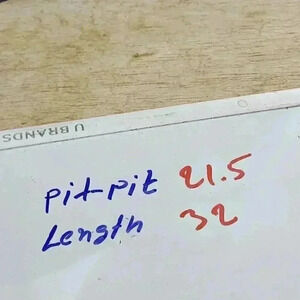 U BRANDS
pit-pit 21.5
Length 32